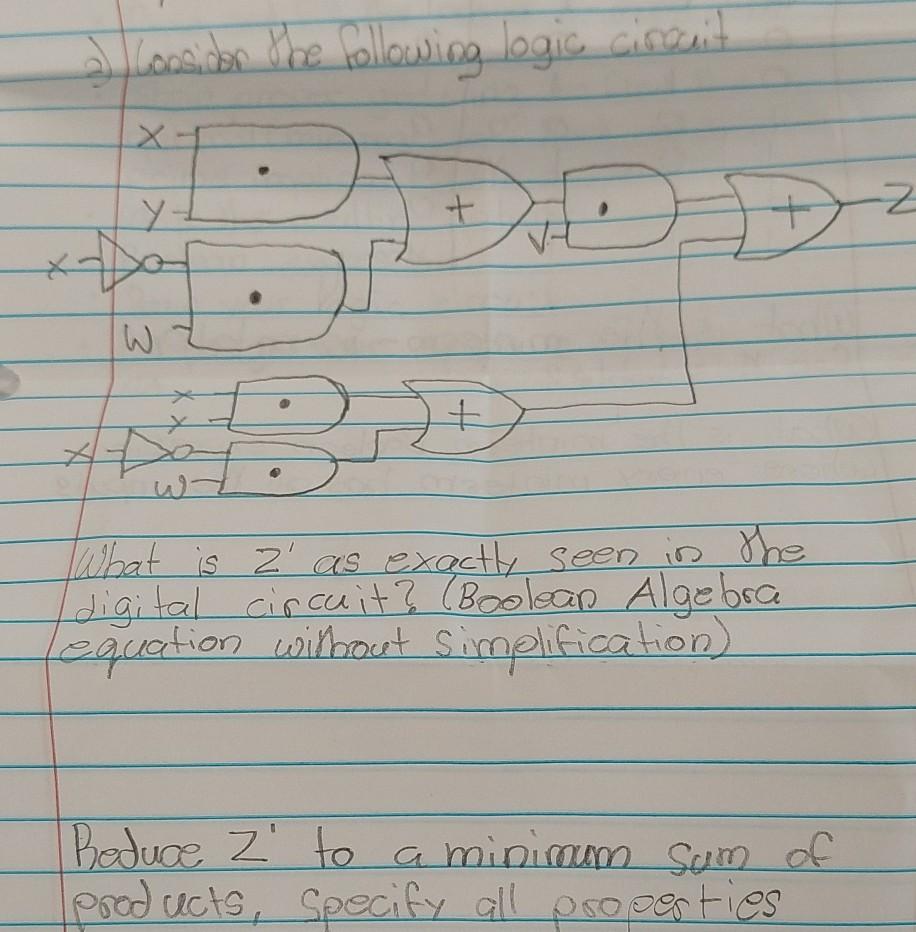 2) Consider the following logic circuit
X
Y
•
+
V
•
+
Z
X
W
•
X
Y
•
+
X
W
•
What is Z' as exactly seen in the
digital circuit? (Boolean Algebra
equation without simplification)
Reduce Z' to a minimum sum of
products, specify all properties